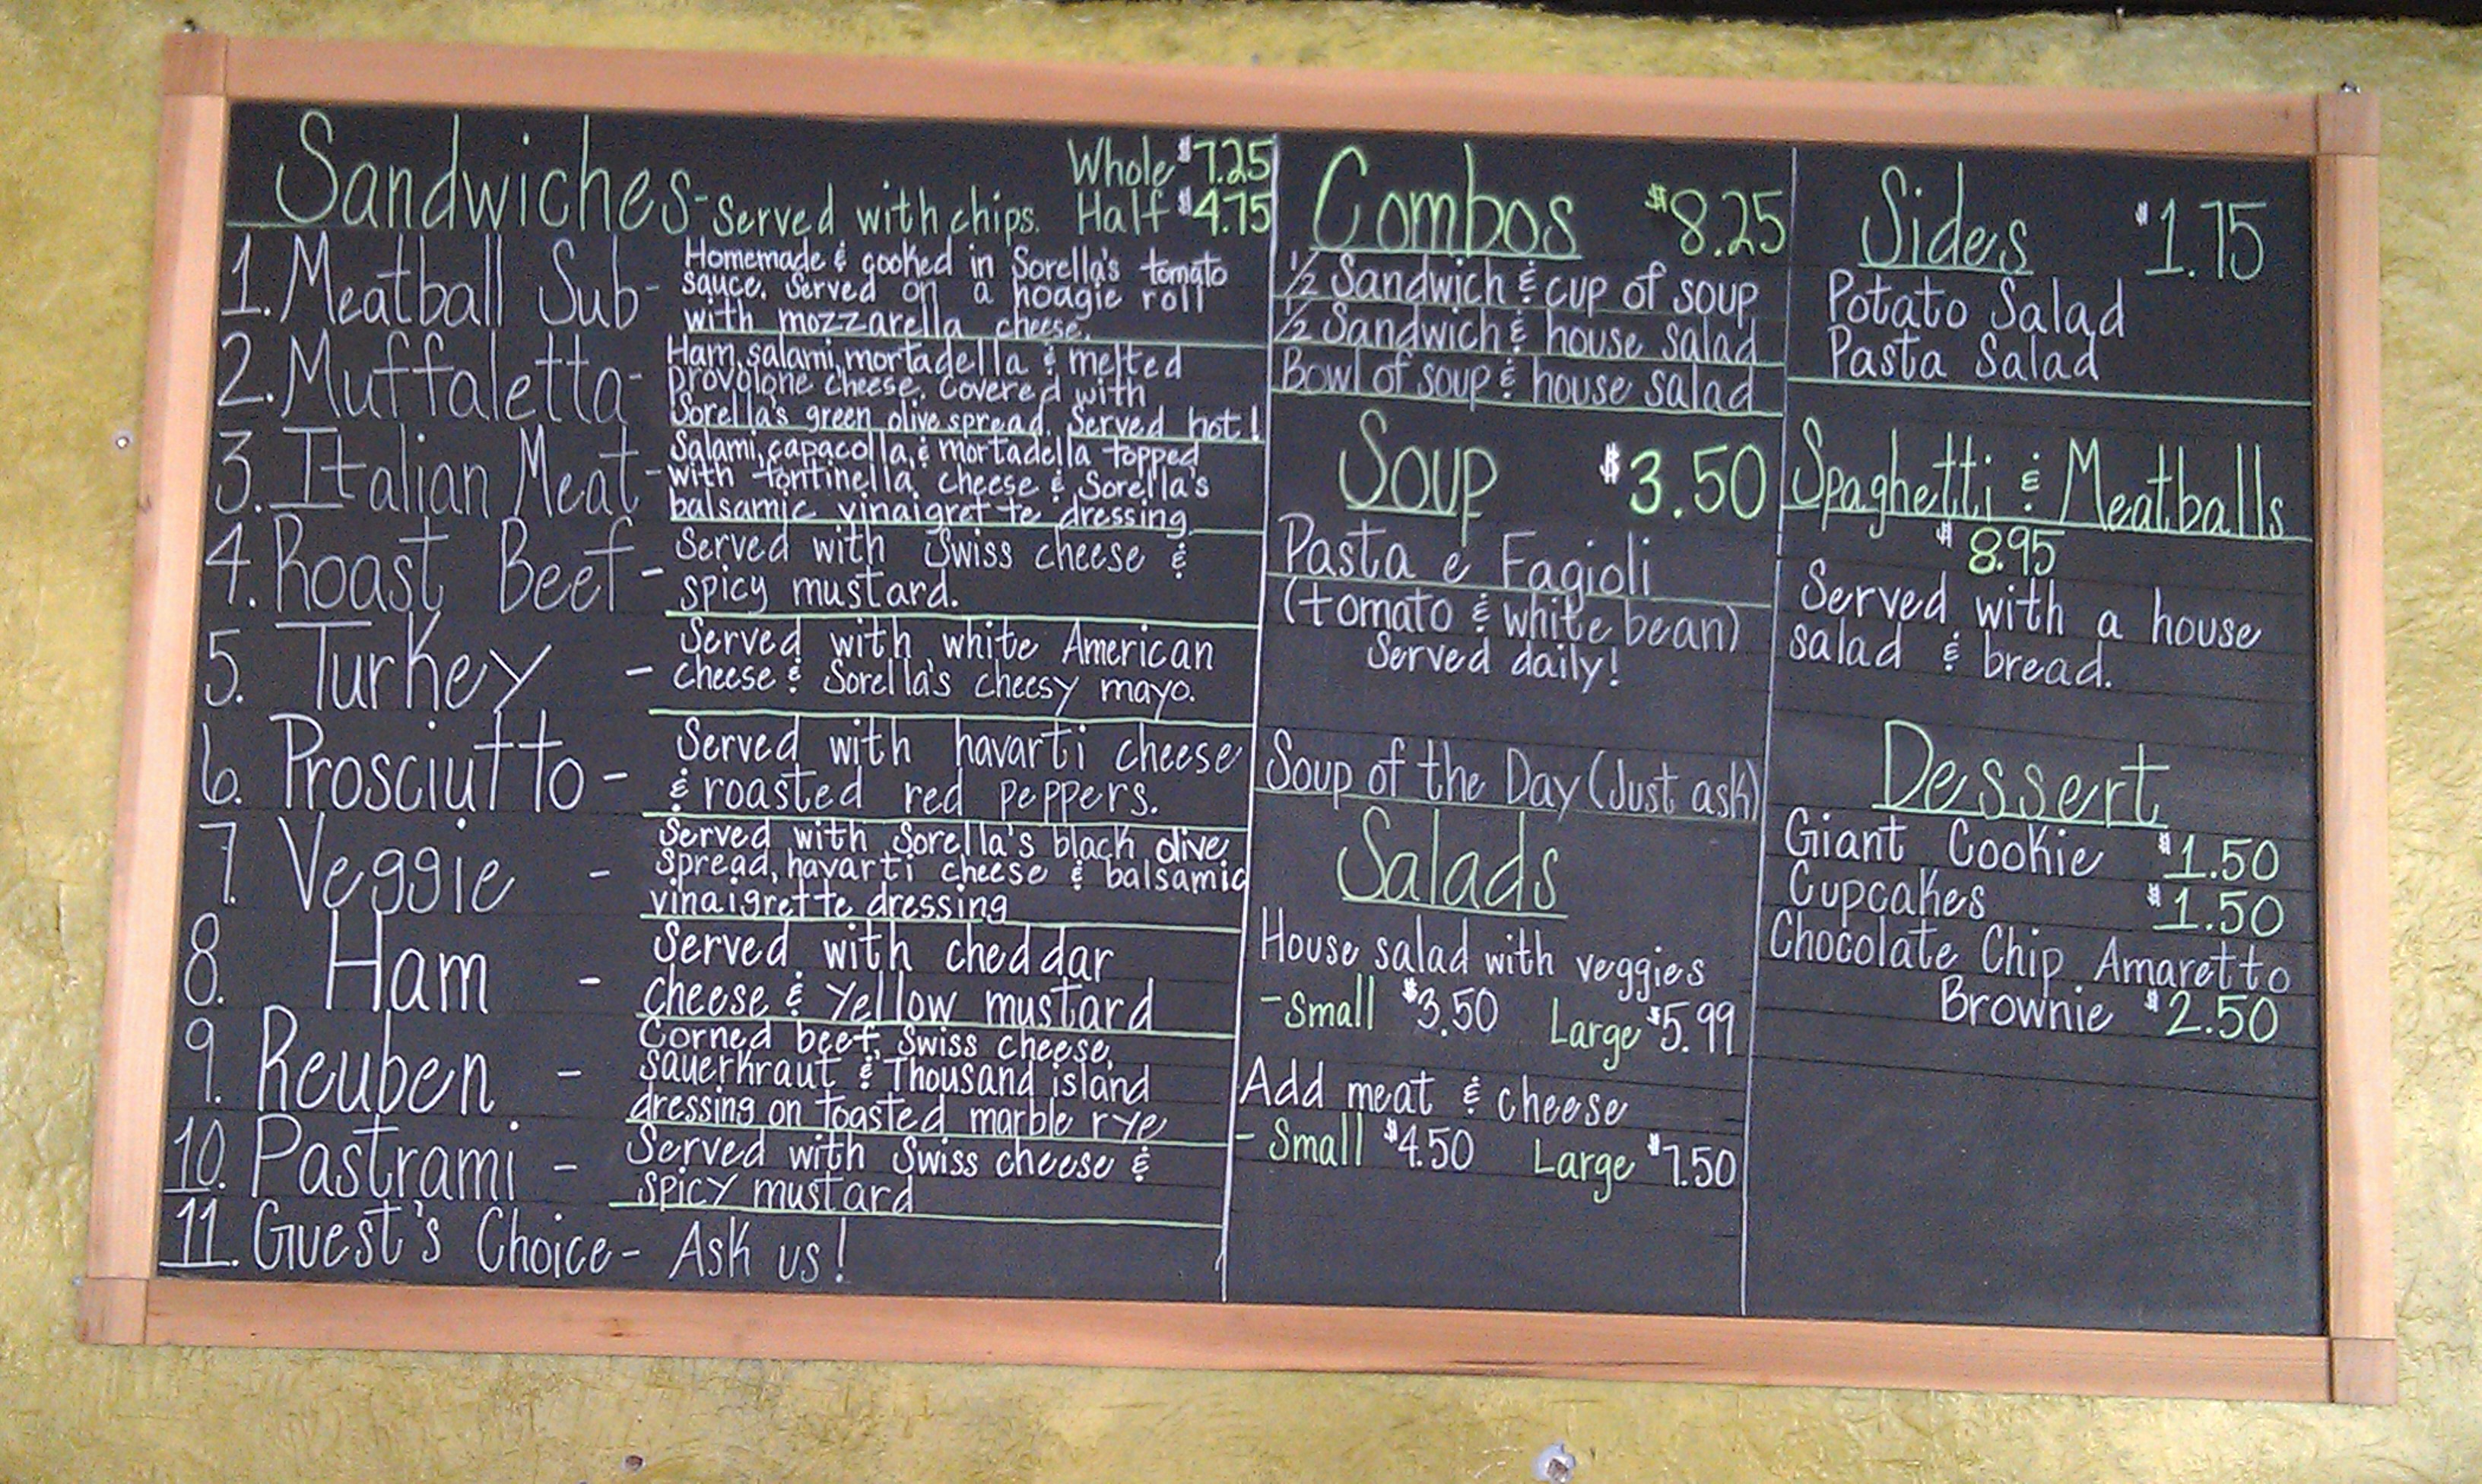 Sandwiches - Served with chips.
Whole $7.25
Half $4.75
1. Meatball Sub - Homemade & cooked in Sorella's tomato
sauce. Served on a hoagie roll
with mozzarella cheese.
2. Muffaletta - Ham, salami, mortadella & melted
provolone cheese. Covered with
Sorella's green olive spread. Served hot!
3. Italian Meat - Salami, capacolla, & mortadella topped
with fontinella cheese & Sorella's
balsamic vinaigrette dressing
4. Roast Beef - Served with Swiss cheese &
spicy mustard.
5. Turkey - Served with white American
cheese & Sorella's cheesy mayo.
6. Prosciutto - Served with havarti cheese
& roasted red peppers.
7. Veggie - Served with Sorella's black olive
spread, havarti cheese & balsamic
vinaigrette dressing
8. Ham - Served with cheddar
cheese & yellow mustard
9. Reuben - Corned beef, Swiss cheese,
sauerkraut & Thousand island
dressing on toasted marble rye
10. Pastrami - Served with Swiss cheese &
spicy mustard
11. Guest's Choice - Ask us!
Combos $8.25
1/2 Sandwich & cup of soup
1/2 Sandwich & house salad
Bowl of soup & house salad
Soup $3.50
Pasta e Fagioli
(tomato & white bean)
Served daily!
Soup of the Day (Just ask)
Salads
House salad with veggies
- Small $3.50 Large $5.99
Add meat & cheese
- Small $4.50 Large $7.50
Sides $1.75
Potato Salad
Pasta Salad
Spaghetti & Meatballs
$8.95
Served with a house
salad & bread.
Dessert
Giant Cookie $1.50
Cupcakes $1.50
Chocolate Chip Amaretto
Brownie $2.50